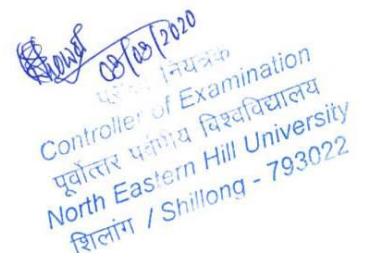 03/03/2020
नियंत्रक
Controller of Examination
पूर्वोत्तर पर्वतीय विश्वविद्यालय
North Eastern Hill University
शिलांग / Shillong - 793022